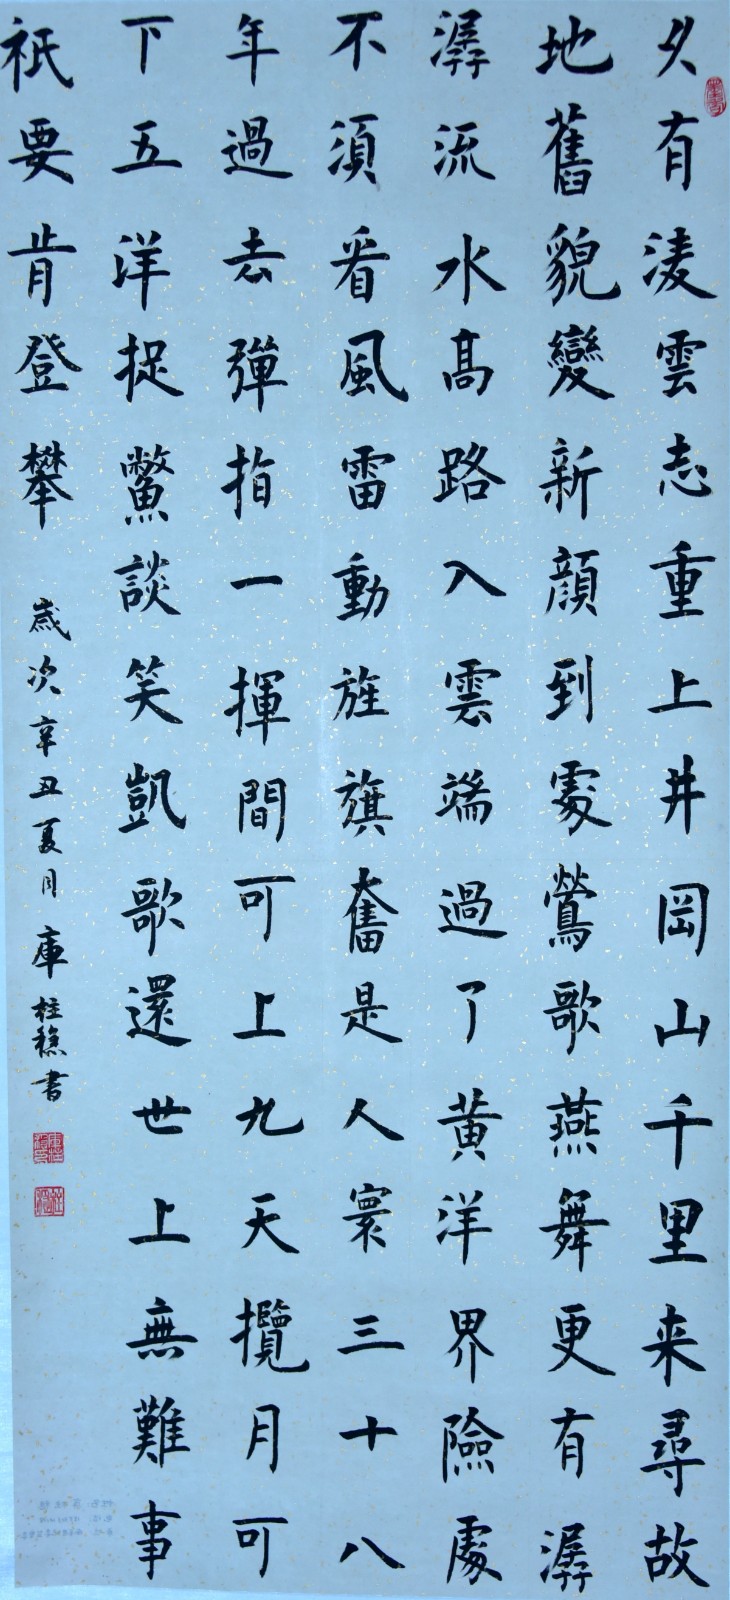 久有凌雲志重上井岡山千里来尋故
地舊貌變新顔到處鶯歌燕舞更有潺
潺流水高路入雲端過了黄洋界險處
不須看風雷動旌旗奮是人寰三十八
年過去彈指一揮間可上九天攬月可
下五洋捉鱉談笑凱歌還世上無難事
衹要肯登攀
歲次辛丑夏月庫桂穗書